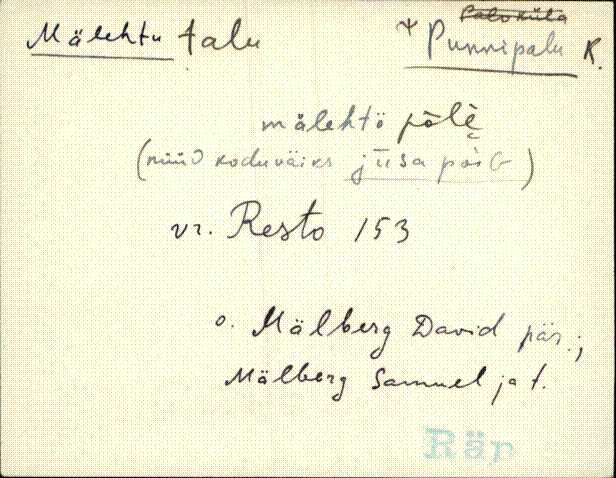 Mälehtu talu
Punnipalu K.
mälehtö pòlè
(nüüd koduväiks jüsa pòiG)
vr. Resto 153
o. Mälberg David pär.;
Mälberg Samuel ja t.
Räp